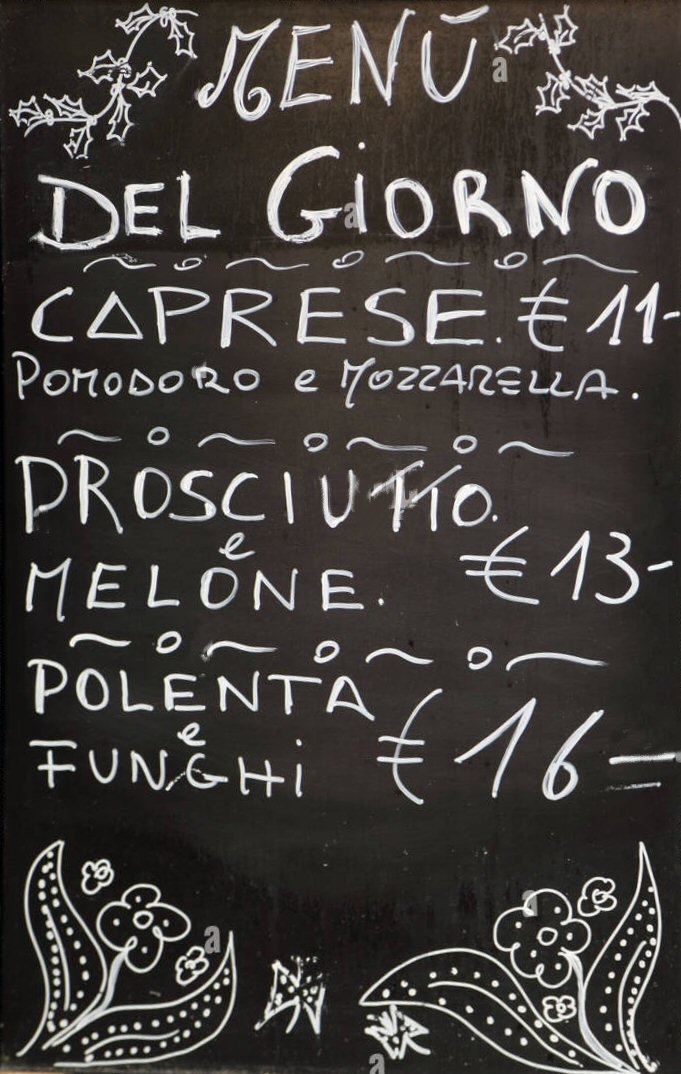 MENÚ
DEL GiORNO
CAPRESE. € 11-
POMODORO e MOZZARELLA.
PROSCIUTTO.
e
MELONE. € 13-
POLENTA
e
FUNGHi € 16-